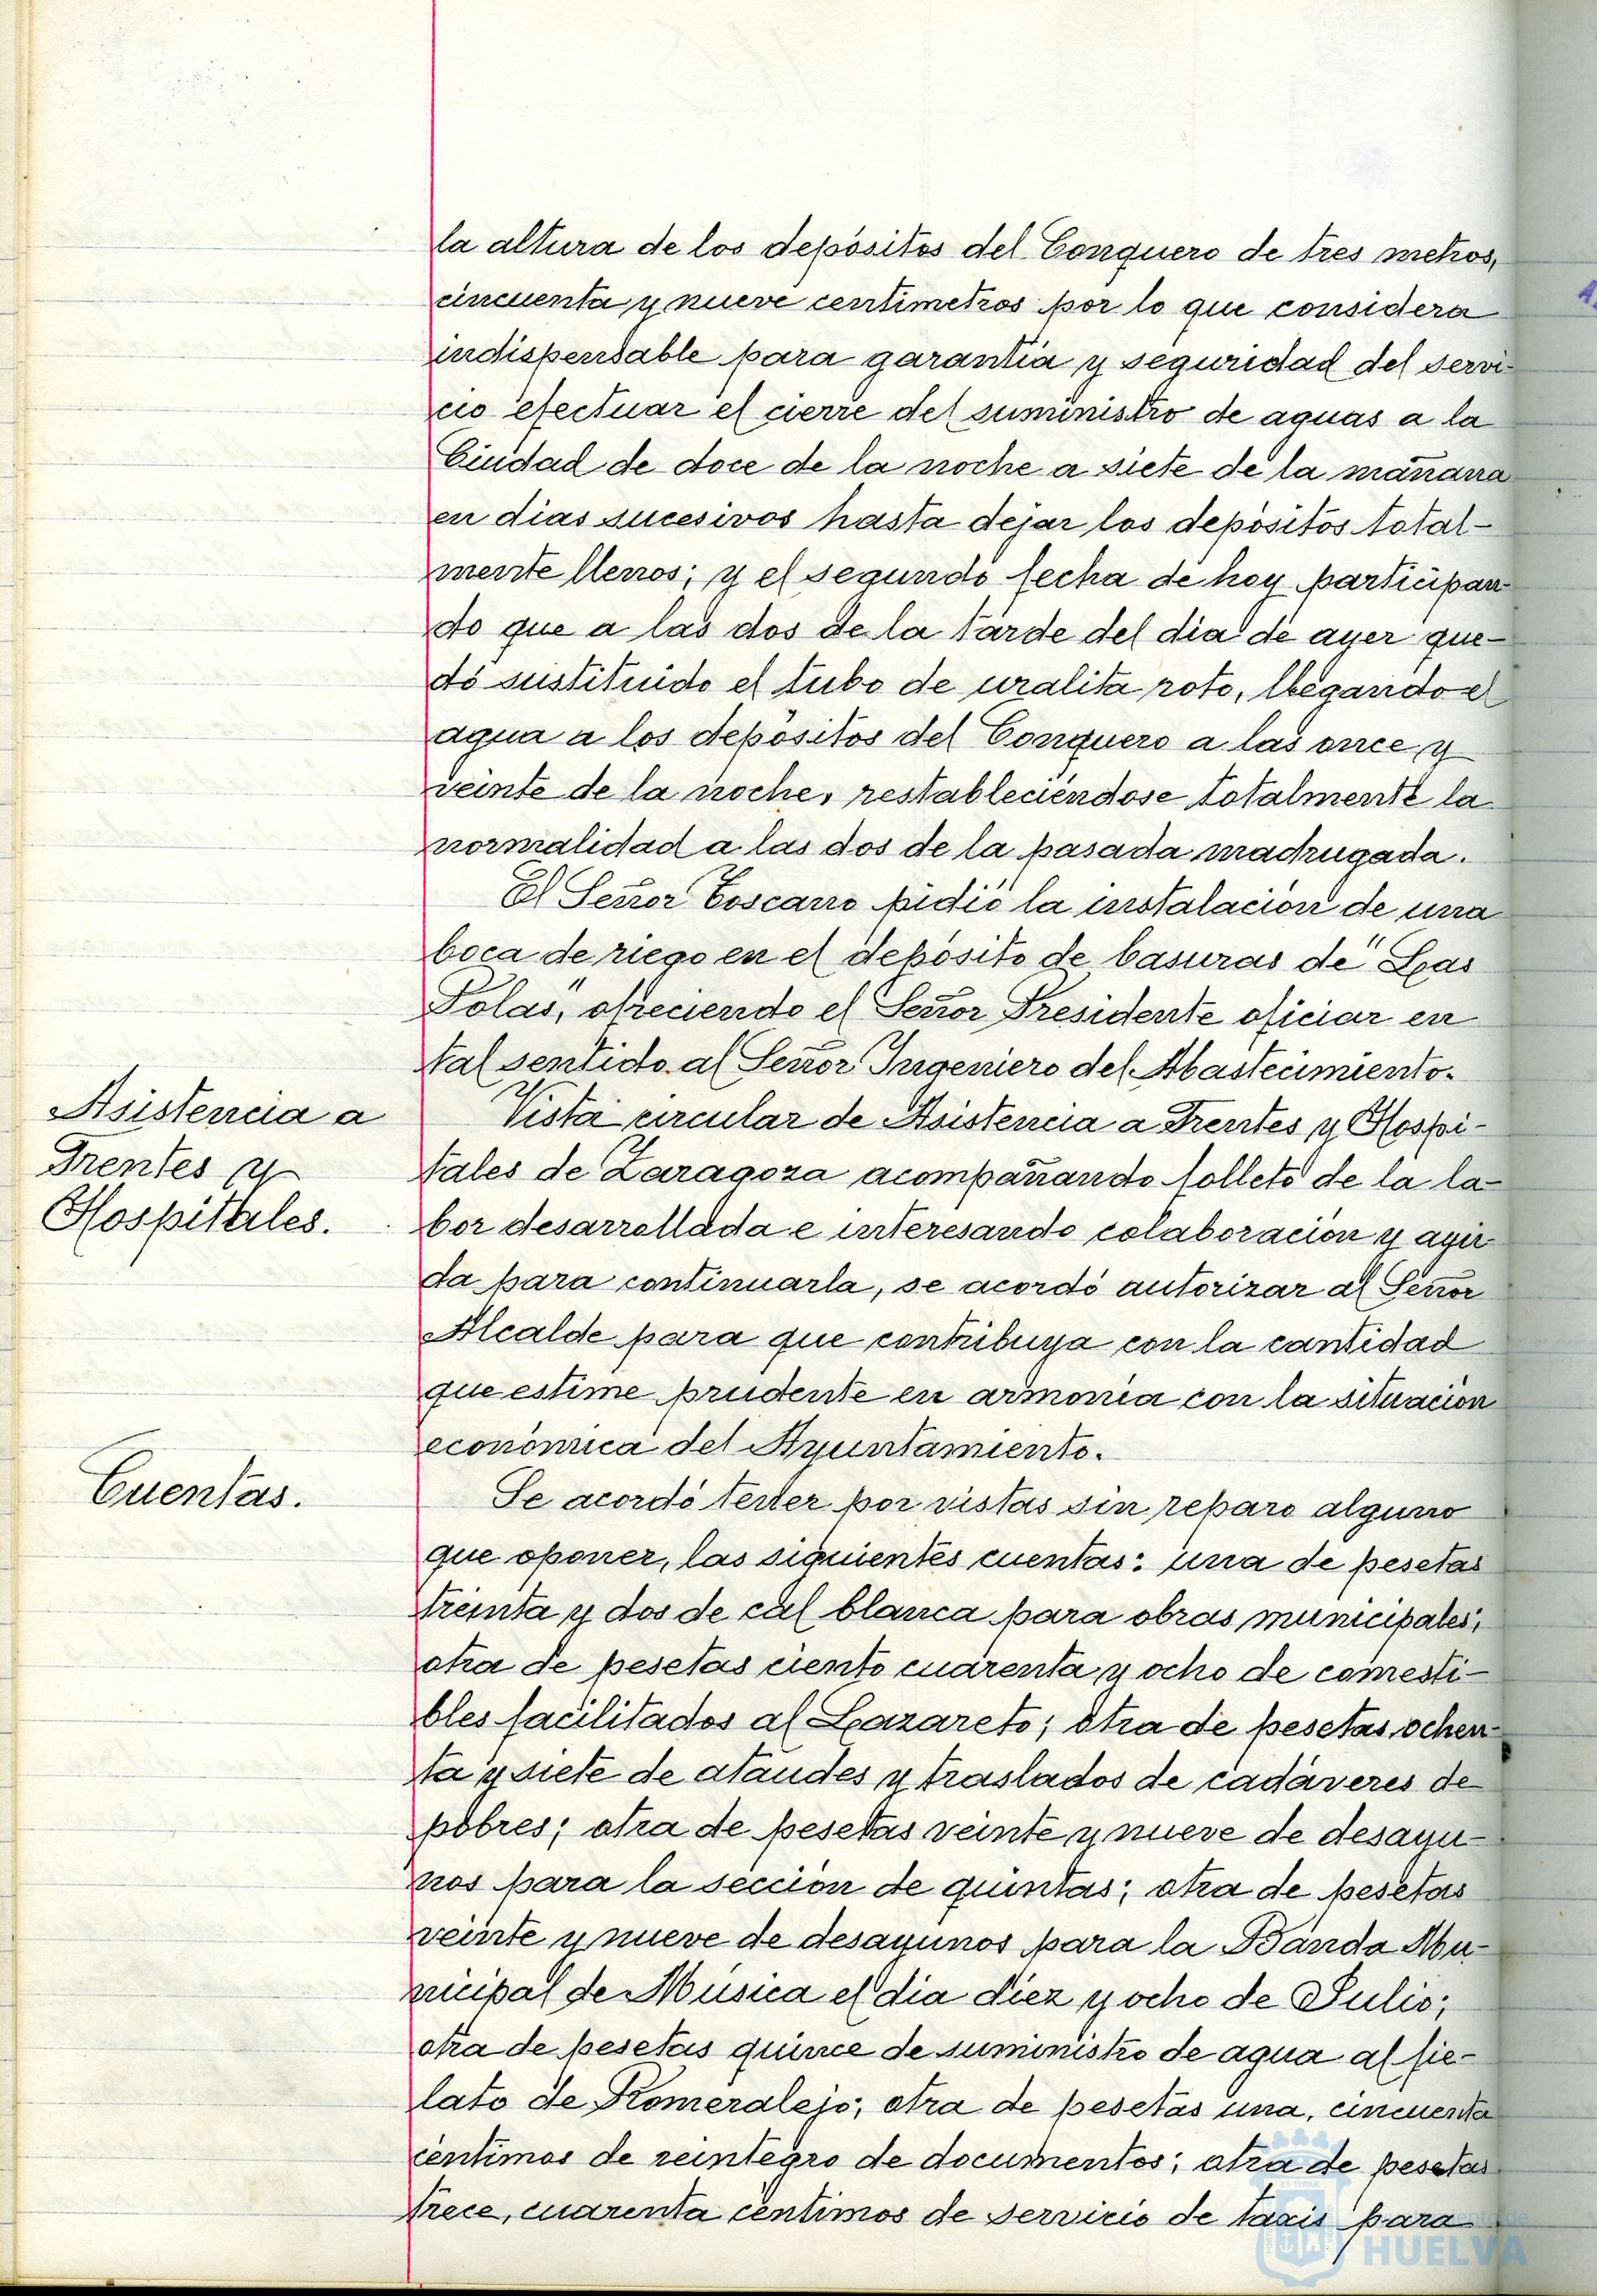 la altura de los depósitos del Conquero de tres metros,
cincuenta y nueve centimetros por lo que considera
indispensable para garantia y seguridad del servi-
cio efectuar el cierre del suministro de aguas a la
Ciudad de doce de la noche a siete de la mañana
en dias sucesivos hasta dejar los depósitos total-
mente llenos; y el segundo fecha de hoy participan-
do que a las dos de la tarde del dia de ayer que-
dó sustituido el tubo de uralita roto, llegando el
agua a los depósitos del Conquero a las once y
veinte de la noche, restableciéndose totalmente la
normalidad a las dos de la pasada madrugada.
El Señor Toscano pidió la instalación de una
boca de riego en el depósito de basuras de "Las
Polas", ofreciendo el Señor Presidente oficiar en
tal sentido al Señor Ingeniero del Abastecimiento.
Asistencia a
Frentes y
Hospitales.
Vista circular de Asistencia a Frentes y Hospi-
tales de Zaragoza acompañando folleto de la la-
bor desarrollada e interesando colaboración y ayu-
da para continuarla, se acordó autorizar al Señor
Alcalde para que contribuya con la cantidad
que estime prudente en armonia con la situación
económica del Ayuntamiento.
Cuentas.
Se acordó tener por vistas sin reparo alguno
que oponer, las siguientes cuentas: una de pesetas
treinta y dos de cal blanca para obras municipales;
otra de pesetas ciento cuarenta y ocho de comesti-
bles facilitados al Lazareto; otra de pesetas ochen-
ta y siete de ataudes y traslados de cadáveres de
pobres; otra de pesetas veinte y nueve de desayu-
nos para la sección de quintas; otra de pesetas
veinte y nueve de desayunos para la Banda Mu-
nicipal de Música el dia diez y ocho de Julio;
otra de pesetas quince de suministro de agua al fie-
lato de Romeralejo; otra de pesetas una, cincuenta
centimos de reintegro de documentos; otra de pesetas
trece, cuarenta centimos de servicio de taxis para
HUELVA